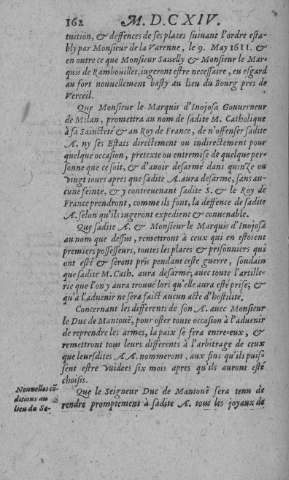 162 M. D. C XIV.
tuition, & deffences de ses places suiuant l'ordre esta-
bly par Monsieur de la Varenne, le 9. May 1611. &
en outre ce que Monsieur Sauelly & Monsieur le Mar-
quis de Rambouillet, iugeront estre necessaire, eu esgard
au fort nouuellement basty au lieu du Bourg pres de
Verceil.
Que Monsieur le Marquis d'Inojosa Gouuerneur
de Milan, promettra au nom de sadite M. Catholique
à sa Saincteté & au Roy de France, de n'offenser sadite
A. ny ses Estats directement ou indirectement pour
quelque occasion, pretexte ou entremise de quelque per-
sonne que ce soit, & d'auoir desarmé dans quinze ou
vingt iours apres que sadite A. aura desarmé, sans au-
cune feinte, & y contreuenant sadite S. & le Roy de
France prendront, comme ils font, la deffence de sadite
A. selon qu'ils iugeront expedient & conuenable.
Que sadite A. & Monsieur le Marquis d'Inojosa
au nom que dessus, remettront à ceux qui en estoient
premiers possesseurs, toutes les places & prisonniers qui
ont esté & seront pris pendant ceste guerre, soudain
que sadite M. Cath. aura desarmé, auec toute l'artille-
rie que l'on y aura trouué lors qu'elle aura esté prise, &
qu'à l'aduenir ne sera faict aucun acte d'hostilité.
Concernant les differents de son A. auec Monsieur
le Duc de Mantouë, pour oster toute occasion à l'aduenir
de reprendre les armes, la paix se fera entre-eux, &
remettront tous leurs differents à l'arbitrage de ceux
que leursdites A A. nommeront, aux fins qu'ils puis-
sent estre vuidez six mois apres qu'ils auront esté
choisis.
Nouuelles cõ-
ditions au
lieu du Se-
Que le Seigneur Duc de Mantouë sera tenu de
rendre promptement à sadite A. tous les joyaux de